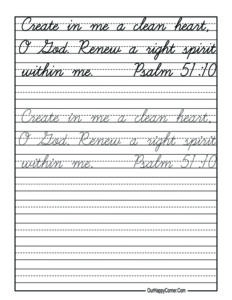 Create in me a clean heart,
O God. Renew a right spirit
within me. Psalm 51:10
Create in me a clean heart,
O God. Renew a right spirit
within me. Psalm 51:10
OurHappyCorner.Com